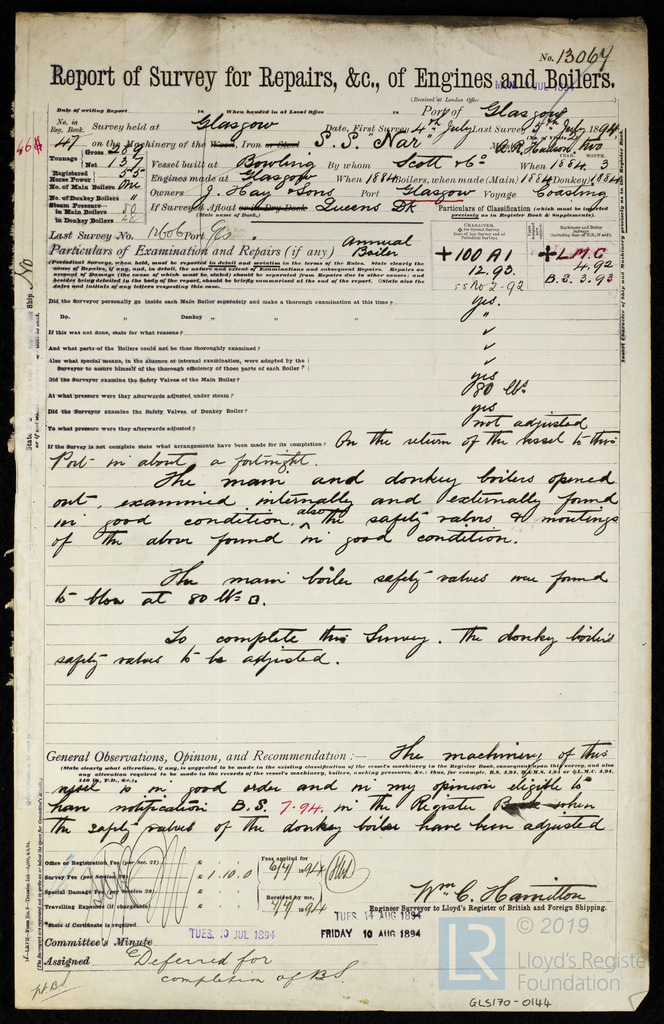 No. 13067
Report of Survey for Repairs, &c., of Engines and Boilers.
(Received at London Office
Date of writing Report 18 When handed in at Local Office 18 Port of Glasgow
No. in Reg. Book. Survey held at Glasgow Date, First Survey 4th July Last Survey 5th July 1894
47 on the Machinery of the Wood, Iron or Steel S.S. "Nar"
Tonnage Gross 287 Net 137 Vessel built at Bowling By whom Scott & Co When 1884 3
YEAR. MONTH.
Registered Horse Power 55 Engines made at Glasgow When 1884 Boilers, when made (Main) 1884 (Donkey) 1884
No. of Main Boilers One Owners J. Hay & Sons Port Glasgow Voyage Coasting
No. of Donkey Boilers "
Steam Pressure in Main Boilers 80 If Surveyed Afloat or in Dry Dock Queens Dk
in Donkey Boilers
(State name of Dock.)
Particulars of Classification (which must be inserted precisely as in Register Book & Supplements).
Last Survey No. 12606 Port Gls.
Particulars of Examination and Repairs (if any) Annual Boiler
+100 A1 + L.M.C.
12.93. 4.92
SS No 2-92 B.S. 3.93
Did the Surveyor personally go inside each Main Boiler separately and make a thorough examination at this time? yes.
Do. " Donkey " " " "
If this was not done, state for what reasons?
And what parts of the Boilers could not be thus thoroughly examined?
Also what special means, in the absence of internal examination, were adopted by the Surveyor to assure himself of the thorough efficiency of those parts of each Boiler?
Did the Surveyor examine the Safety Valves of the Main Boiler? yes
At what pressure were they afterwards adjusted under steam? 80 lbs
Did the Surveyor examine the Safety Valves of Donkey Boiler? yes
To what pressure were they afterwards adjusted? not adjusted
If the Survey is not complete state what arrangements have been made for its completion? On the return of the vessel to this
Port in about a fortnight.
The main and donkey boilers opened
out, examined internally and externally found
in good condition, also the safety valves & mountings
of the above found in good condition.
The main boiler safety valves were found
to blow at 80 lbs □.
To complete this Survey. The donkey boilers
safety valves to be adjusted.
General Observations, Opinion, and Recommendation:— The machinery of this
(State clearly what alteration, if any, is suggested to be made in the existing classification of the vessel's machinery in the Register Book, consequent upon this survey, and also any alteration required to be made in the records of the vessel's machinery, boilers, working pressures, &c.: thus, for example, B.S. 4.94, B.&M.S. 4.94 or L.M.C. 4.94, 140 lb., F.D., &c.)
vessel is in good order and in my opinion eligible to
have notification B.S. 7.94. in the Register Book when
the safety valves of the donkey boiler have been adjusted
Office or Registration Fee (per Sec. 27) £ : :
Survey Fee (per Section 28) £ 1.10.0
Special Damage Fee (per Section 28) £ : :
Travelling Expenses (if chargeable) £ : :
Fees applied for 6/7 1894
Received by me, 7/7 1894
Wm C. Hamilton
Engineer Surveyor to Lloyd's Register of British and Foreign Shipping.
State if Certificate is required
TUES. 10 JUL 1894
TUES 14 AUG 1894
FRIDAY 10 AUG 1894
Committee's Minute
Assigned Deferred for
completion of BS.
LR
© 2019
Lloyd's Registe
Foundation
GLS170-0144